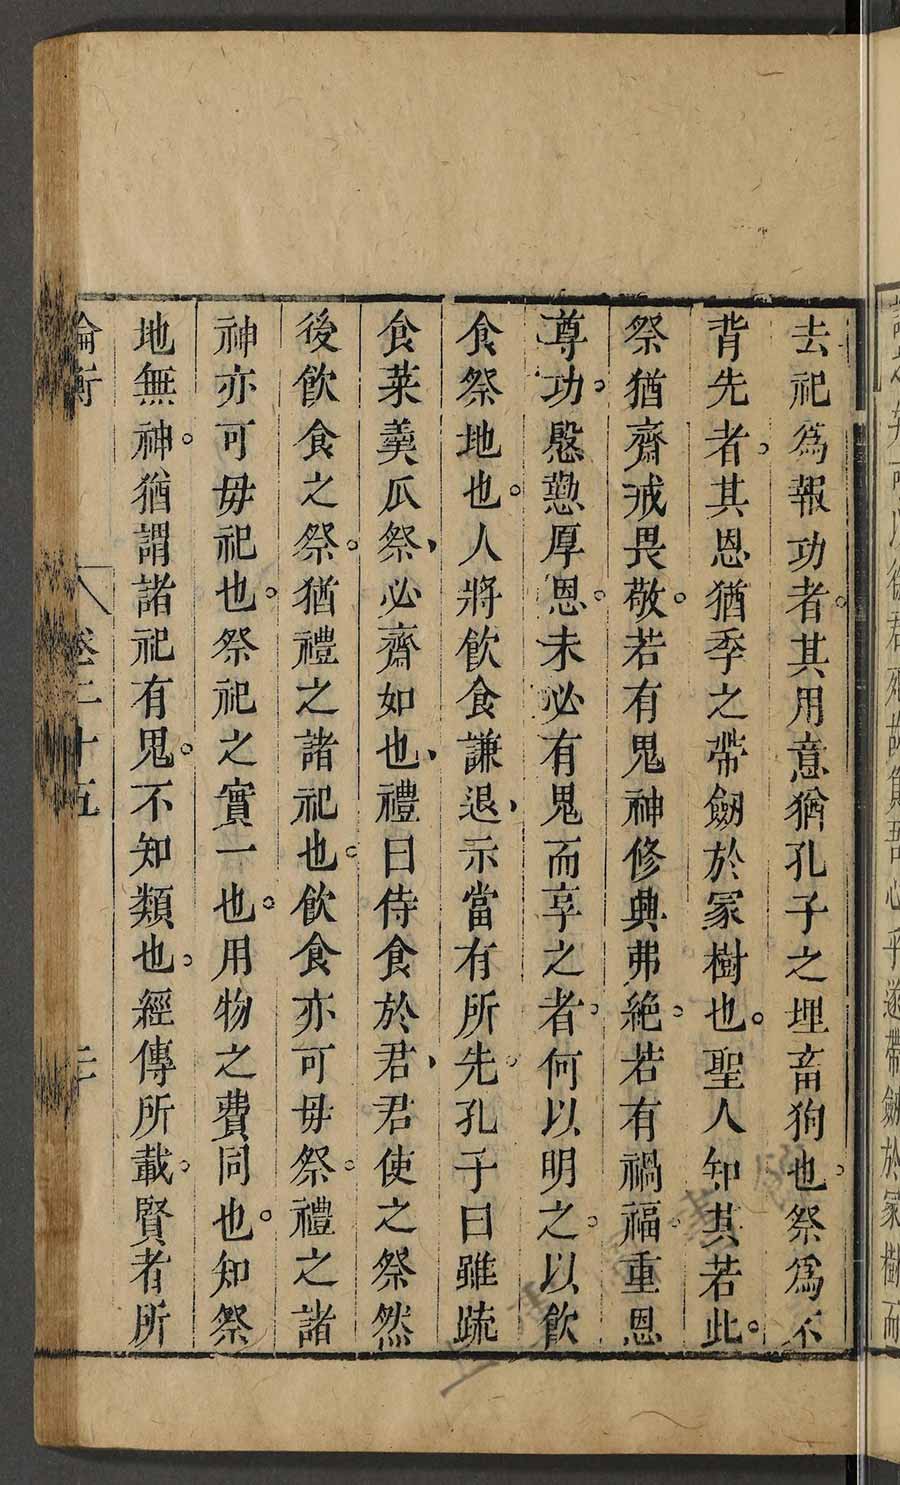 去祀爲報功者其用意猶孔子之埋畜狗也祭爲不
背先者其恩猶季之帶劒於冡樹也聖人知其若此
祭猶齋戒畏敬若有鬼神修典弗絶若有禍福重恩
尊功慇懃厚恩未必有鬼而享之者何以明之以飮
食祭地也人將飮食謙退示當有所先孔子曰雖疏
食菜羹瓜祭必齋如也禮曰侍食於君君使之祭然
後飮食之祭猶禮之諸祀也飮食亦可毋祭禮之諸
神亦可毋祀也祭祀之實一也用物之費同也知祭
地無神猶謂諸祀有鬼不知類也經傳所載賢者所
論衡 卷二十五